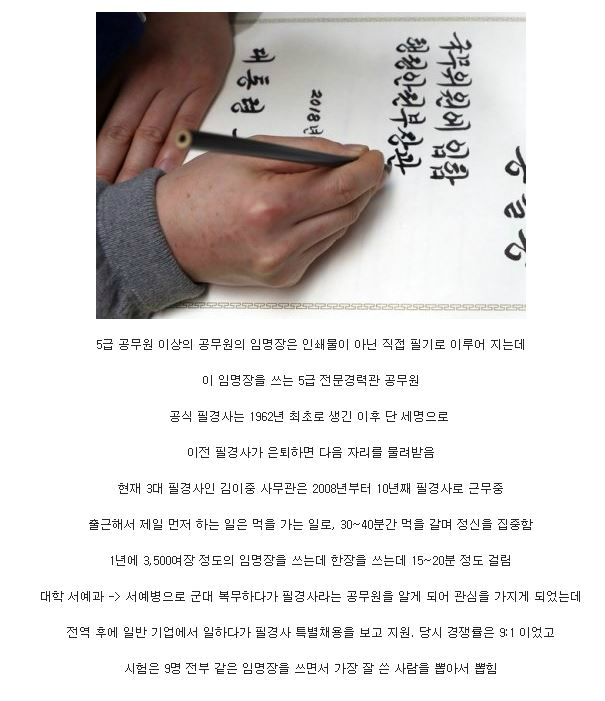 국무위원에 임함
행정안전부장관
2018년
대통령
5급 공무원 이상의 공무원의 임명장은 인쇄물이 아닌 직접 필기로 이루어 지는데
이 임명장을 쓰는 5급 전문경력관 공무원
공식 필경사는 1962년 최초로 생긴 이후 단 세명으로
이전 필경사가 은퇴하면 다음 자리를 물려받음
현재 3대 필경사인 김이중 사무관은 2008년부터 10년째 필경사로 근무중
출근해서 제일 먼저 하는 일은 먹을 가는 일로, 30~40분간 먹을 갈며 정신을 집중함
1년에 3,500여장 정도의 임명장을 쓰는데 한장을 쓰는데 15~20분 정도 걸림
대학 서예과 -> 서예병으로 군대 복무하다가 필경사라는 공무원을 알게 되어 관심을 가지게 되었는데
전역 후에 일반 기업에서 일하다가 필경사 특별채용을 보고 지원. 당시 경쟁률은 9:1 이었고
시험은 9명 전부 같은 임명장을 쓰면서 가장 잘 쓴 사람을 뽑아서 뽑힘